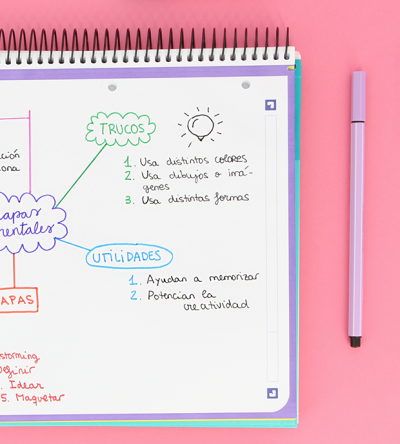 TRUCOS
1. Usa distintos colores
2. Usa dibujos o imá-
genes
3. Usa distintas formas
UTILIDADES
1. Ayudan a memorizar
2. Potencian la
creatividad
ción
ona
apas
entales
APAS
storming
efinir
. Idear
5. Maquetar